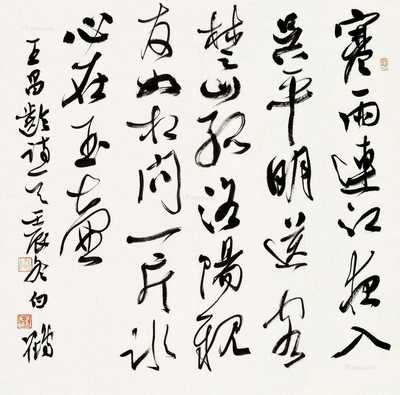 寒雨連江夜入
吳平明送客
楚山孤洛陽親
友如相問一片冰
心在玉壺
王昌齡詩一首壬辰冬白鶴